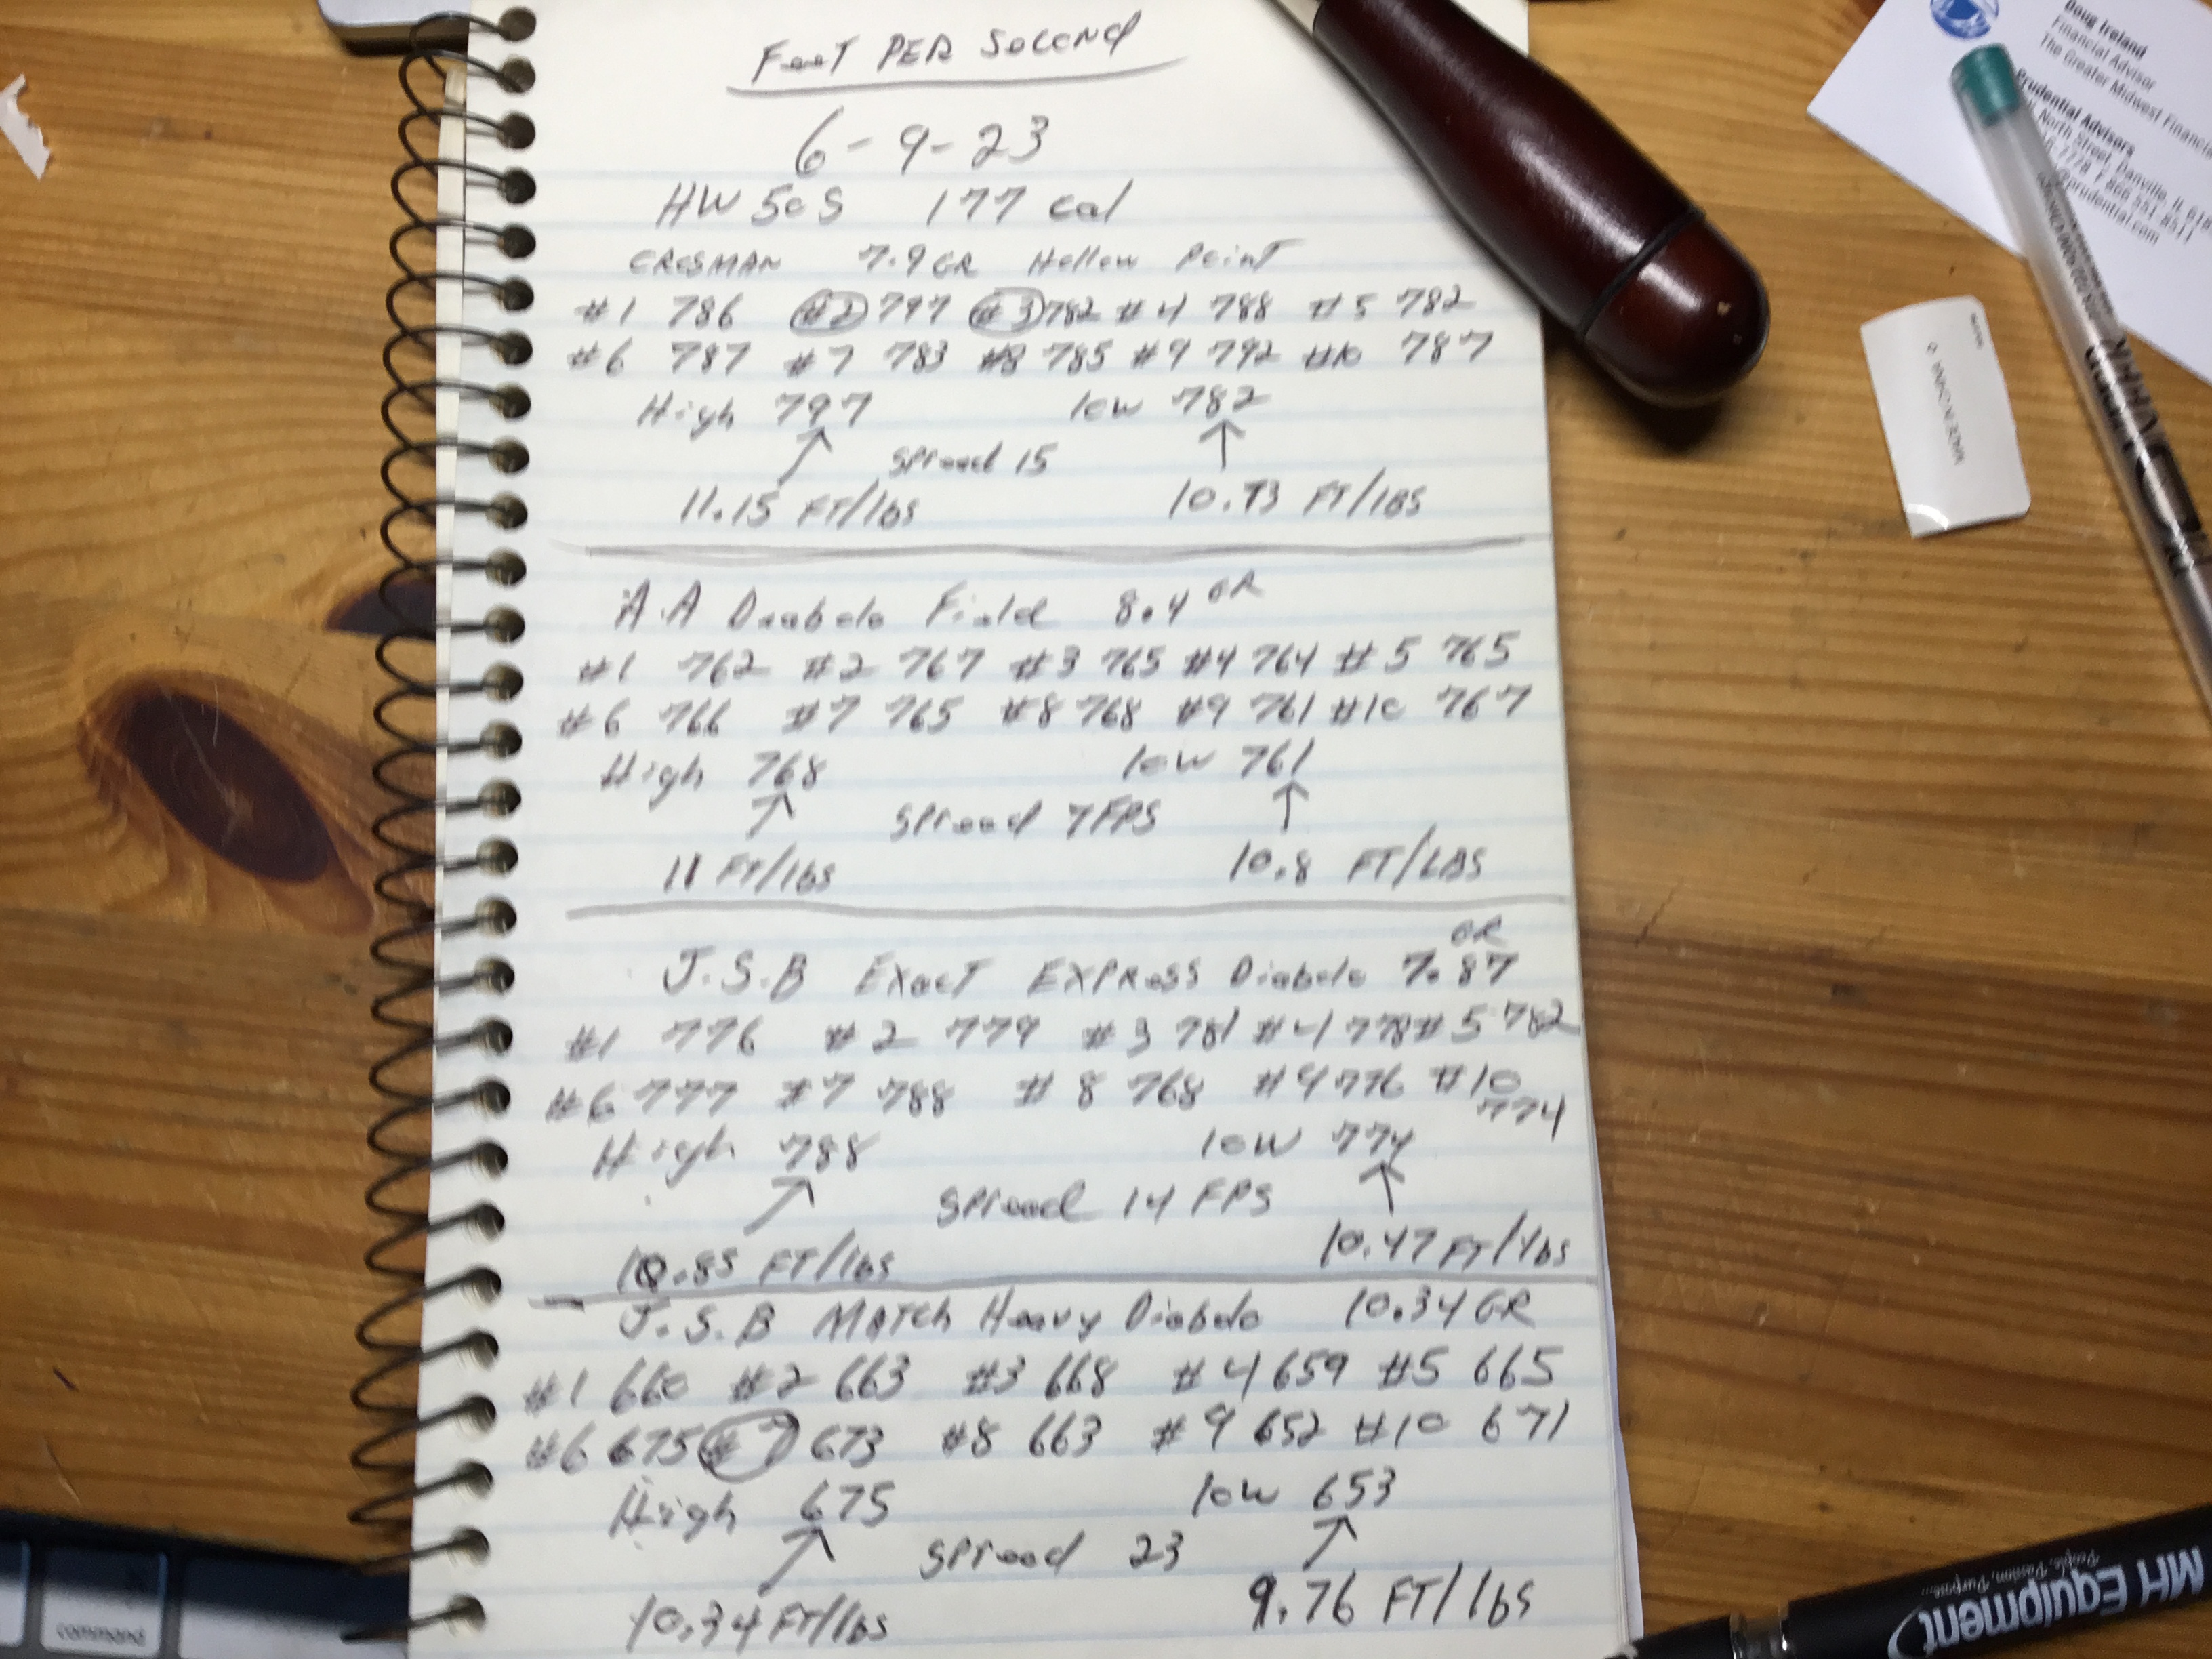 FeeT PER Second
6-9-23
HW 50S 177 cal
CROSMAN 7.9 GR Hollow Point
#1 786 #2 797 #3 782 #4 788 #5 782
#6 787 #7 783 #8 785 #9 792 #10 787
High 797 low 782
spread 15
11.15 FT/lbs 10.73 FT/lBS
A.A Diabolo Field 8.4 GR
#1 762 #2 767 #3 765 #4 764 #5 765
#6 766 #7 765 #8 768 #9 761 #10 767
High 768 low 761
Spread 7 FPS
11 FT/lbs 10.8 FT/LBS
J.S.B Exact EXPRess Diabolo 7.87 GR
#1 776 #2 779 #3 781 #4 778 #5 782
#6 777 #7 788 #8 768 #9 776 #10 774
High 788 low 774
Spread 14 FPS
10.85 FT/lbs 10.47 FT/lbs
J.S.B MATCh Heavy Diabolo 10.34 GR
#1 660 #2 663 #3 668 #4 659 #5 665
#6 675 #7 673 #8 663 #9 652 #10 671
High 675 low 653
Spread 23
10.34 FT/lbs 9.76 FT/lbs
Doug Ireland
Financial Advisor
The Greater Midwest Financial
Prudential Advisors
North Street, Danville, IL
@prudential.com
MH Equipment
People. Passion. Purpose...
command